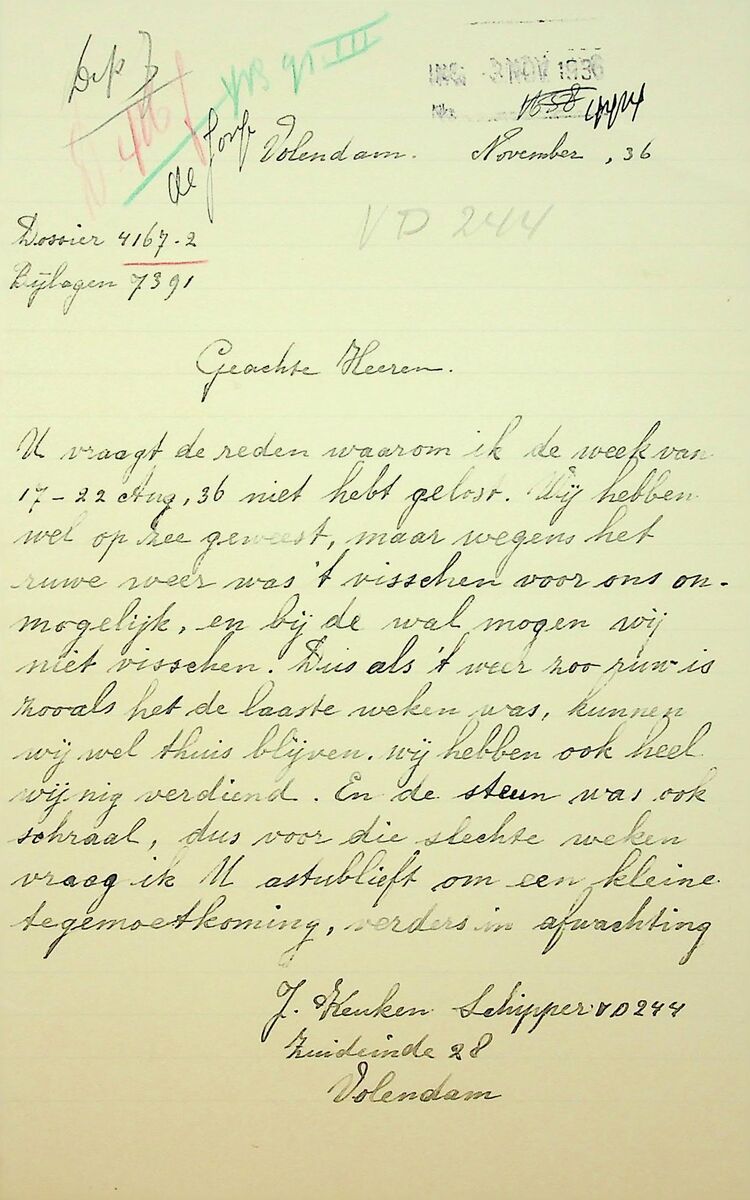 Dep 7
de Jong
NOV 1936
Volendam. November, 36
VD 244
Dossier 4167-2
Bijlagen 7391
Geachte Heeren.
U vraagt de reden waarom ik de week van
17-22 Aug, 36 niet hebt gelost. Wij hebben
wel op zee geweest, maar wegens het
ruwe weer was 't visschen voor ons on-
mogelijk, en bij de wal mogen wij
niet visschen. Dus als 't weer zoo ruw is
zooals het de laaste weken was, kunnen
wij wel thuis blijven. wij hebben ook heel
wijnig verdiend. En de steun was ook
schraal, dus voor die slechte weken
vraag ik U astublieft om een kleine
tegemoetkoming, verders in afwachting
J. Keuken Schipper VD244
Zuideinde 28
Volendam